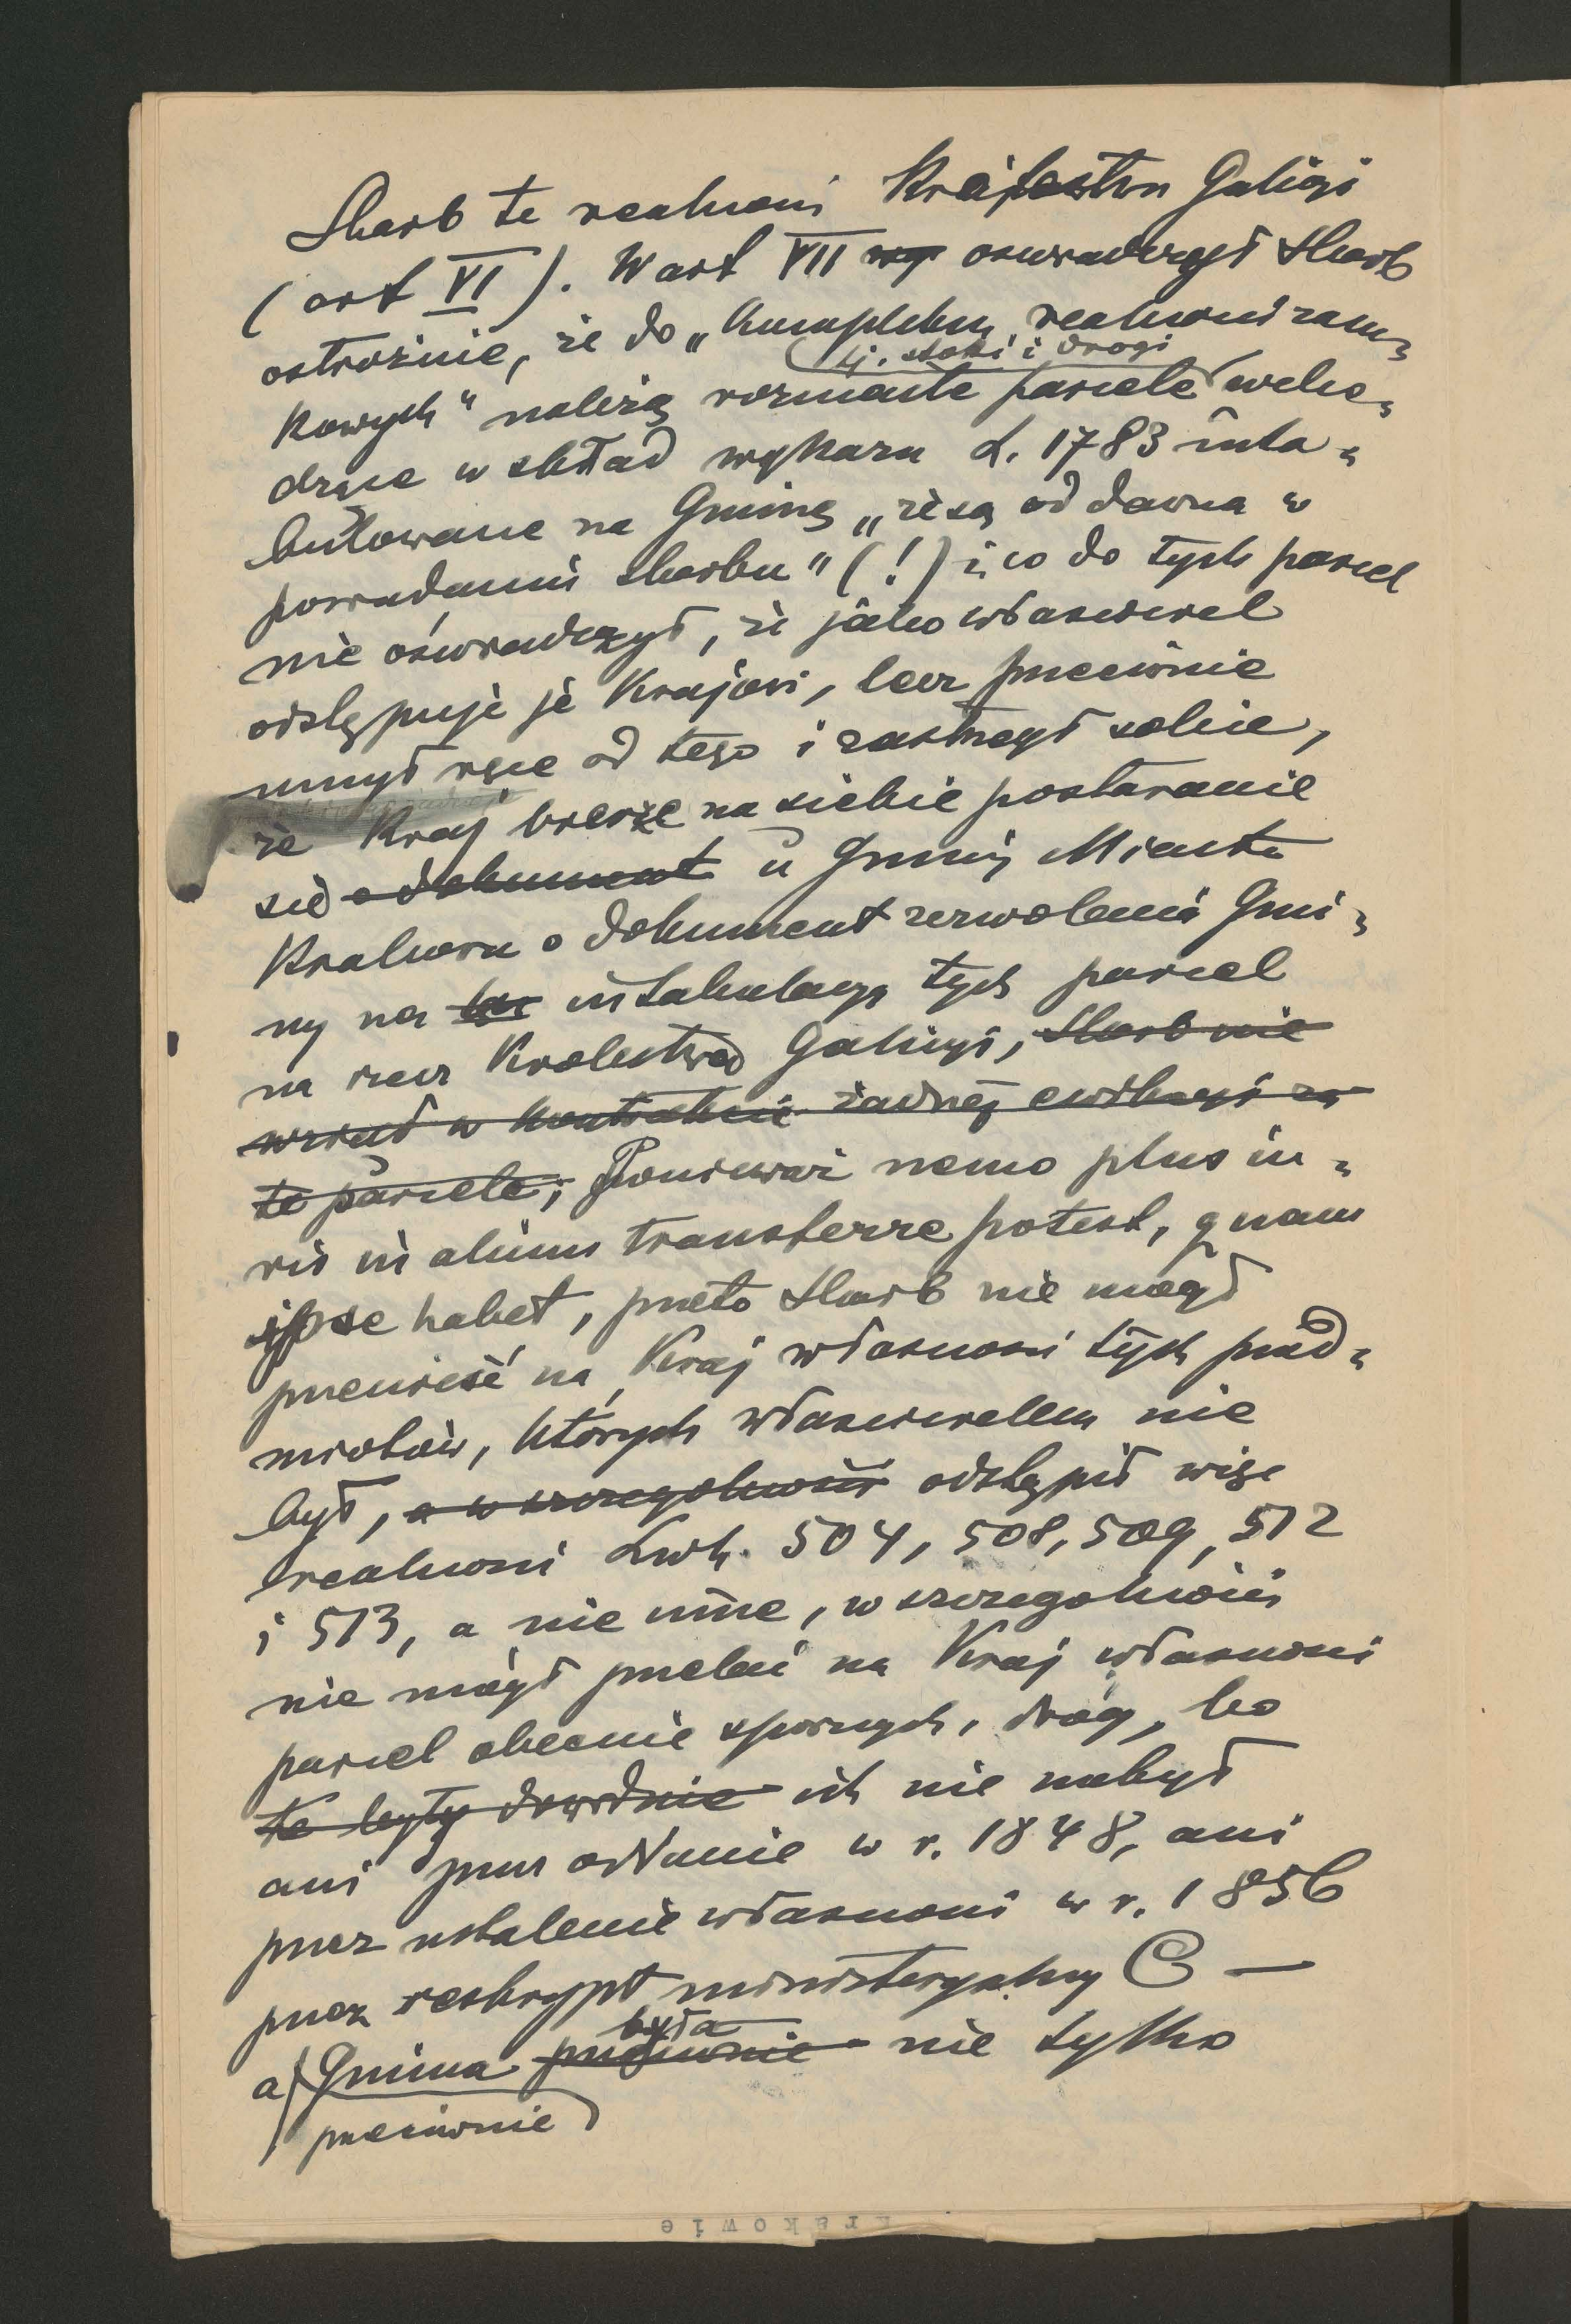 Skarb te realności Królestwu Galicyi
(art VI). W art VII wy oświadczył Skarb
ostrożnie, że do „kompleksu realności zam-
tj. stoki i drogi
kowych" należą rozmaite parcele wcho-
dzące w skład wykazu L. 1783 inta-
bulowane na Gminę „że są od dawna w
posiadaniu Skarbu" (!) i co do tych parcel
nie oświadczył, że jako właściciel
odstępuje je Krajowi, lecz przeciwnie
umył ręce od tego i zastrzegł sobie,
że Kraj bierze na siebie postaranie
się o dokument u Gminy Miasta
Krakowa o dokument zezwolenia Gmi-
ny na intabulacyę tych parcel
na rzecz Królestwa Galicyi, Skarb nie
wziął w kontrakcie żadnej ewikcyi za
te parcele; Ponieważ nemo plus iu-
ris in alium transferre potest, quam
ipse habet, przeto Skarb nie mógł
przenieść na Kraj własności tych przed-
miotów, których właścicielem nie
był, a w szczególności odstąpił więc
realności Lwh. 504, 508, 509, 512
i 513, a nie inne, w szczególności
nie mógł przelać na Kraj własności
parcel obecnie spornych, dróg, bo
te były dowodnie ich nie nabył
ani przez oddanie w r. 1848, ani
przez ustalenie własności w r. 1856
przez reskrypt ministeryalny C —
była
a Gmina przeciwnie nie tylko
przeciwnie
Krakowie